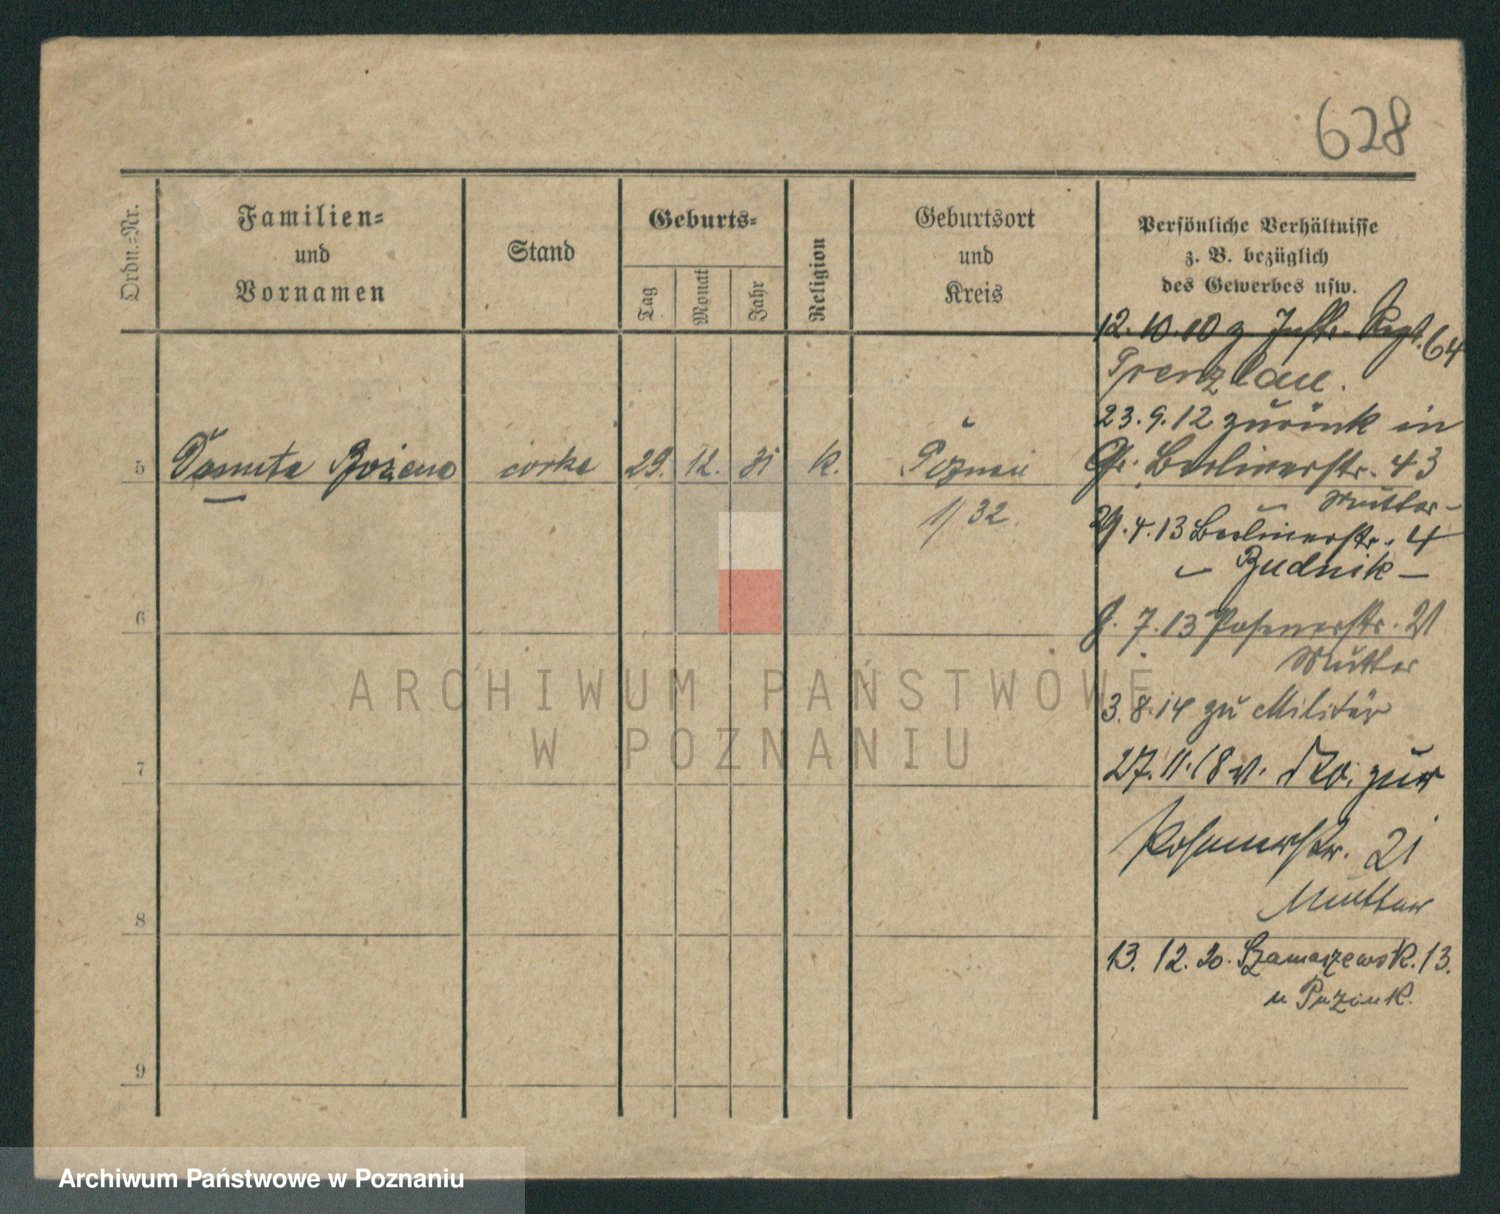 628
Ordn.-Nr.
Familien-
und
Vornamen
Stand
Geburts-
Tag
Monat
Jahr
Religion
Geburtsort
und
Kreis
Persönliche Verhältnisse
z. B. bezüglich
des Gewerbes usw.
12. 10. 10 z Inftr. Regt. 64
Prenzlau.
23. 9. 12 zurück in
Berlinerstr. 43
Mutter
5 Danuta Bożena córka 29. 12. 31 k. Poznań
1/32.
29. 4. 13 Berlinerstr. 4
- Budnik -
6
8. 7. 13 Posenerstr. 21
Mutter
3. 8. 14 zu Militär
7
27. 11. 18 v. zur
Posenerstr. 21
Mutter
8
13. 12. 20. Szamarzewsk. 13.
u
9
ARCHIWUM PAŃSTWOWE
W POZNANIU
Archiwum Państwowe w Poznaniu